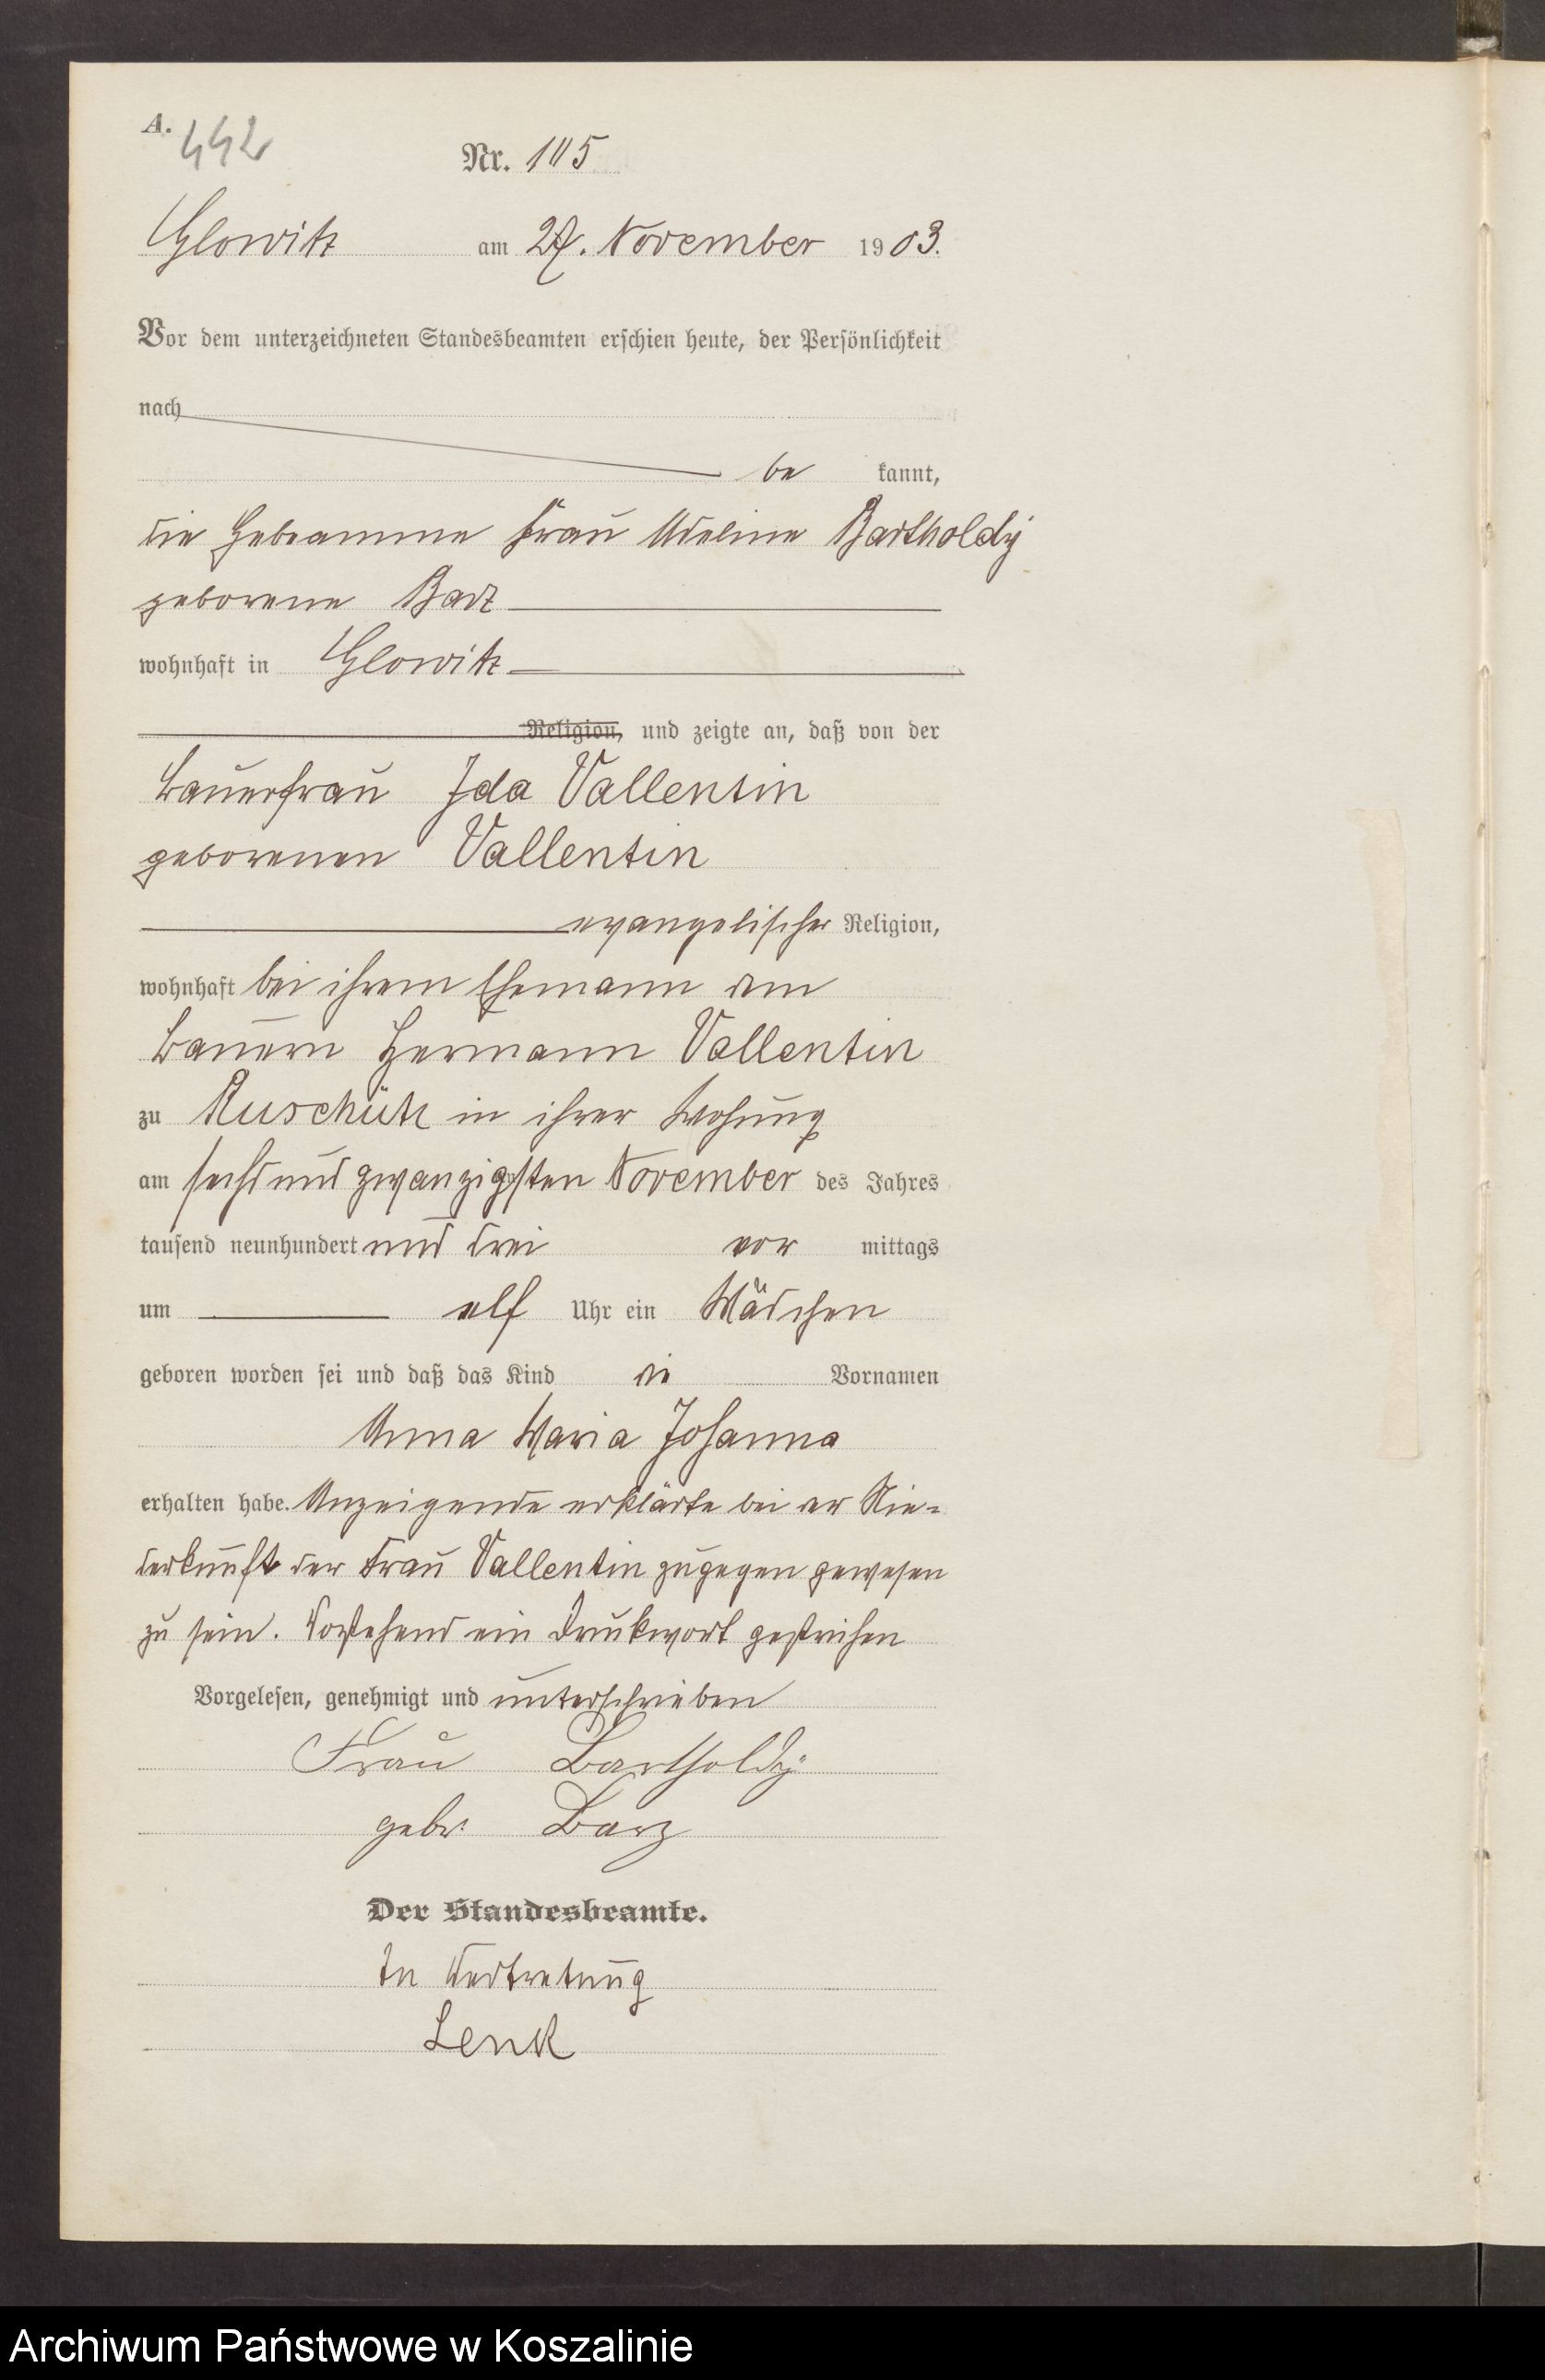 A.
442
Nr. 105
Glowitz am 27. November 1903.
Vor dem unterzeichneten Standesbeamten erschien heute, der Persönlichkeit
nach
be kannt,
die Hebeamme Frau Adeline Bartholdy
geborene Barz
wohnhaft in Glowitz
Religion, und zeigte an, daß von der
Bauerfrau Ida Vallentin
geborenen Vallentin
evangelischer Religion,
wohnhaft bei ihrem Ehemann dem
Bauern Hermann Vallentin
zu Ruschütz in ihrer Wohnung
am sechsundzwanzigsten November des Jahres
tausend neunhundert und drei vor mittags
um elf Uhr ein Mädchen
geboren worden sei und daß das Kind die Vornamen
Anna Maria Johanna
erhalten habe. Anzeigende erklärte bei der Nie-
derkunft der Frau Vallentin zugegen gewesen
zu sein. Vorstehend ein Druckwort gestrichen
Vorgelesen, genehmigt und unterschrieben
Frau Bartholdy
gebr. Barz
Der Standesbeamte.
In Vertretung
Lenk
Archiwum Państwowe w Koszalinie